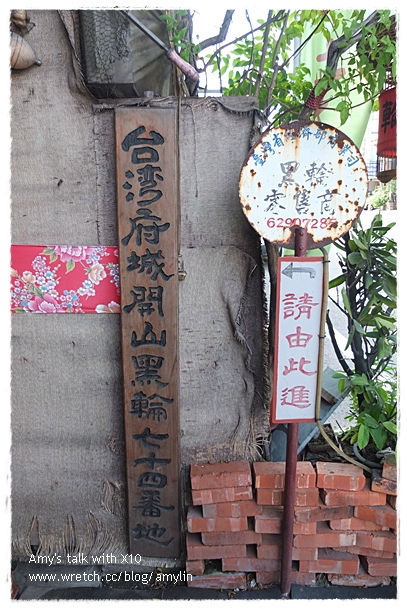 台灣府城開山黑輪七十四番地
黑輪
零售店
請由此進
Amy's talk with X10
www.wretch.cc/blog/amylin